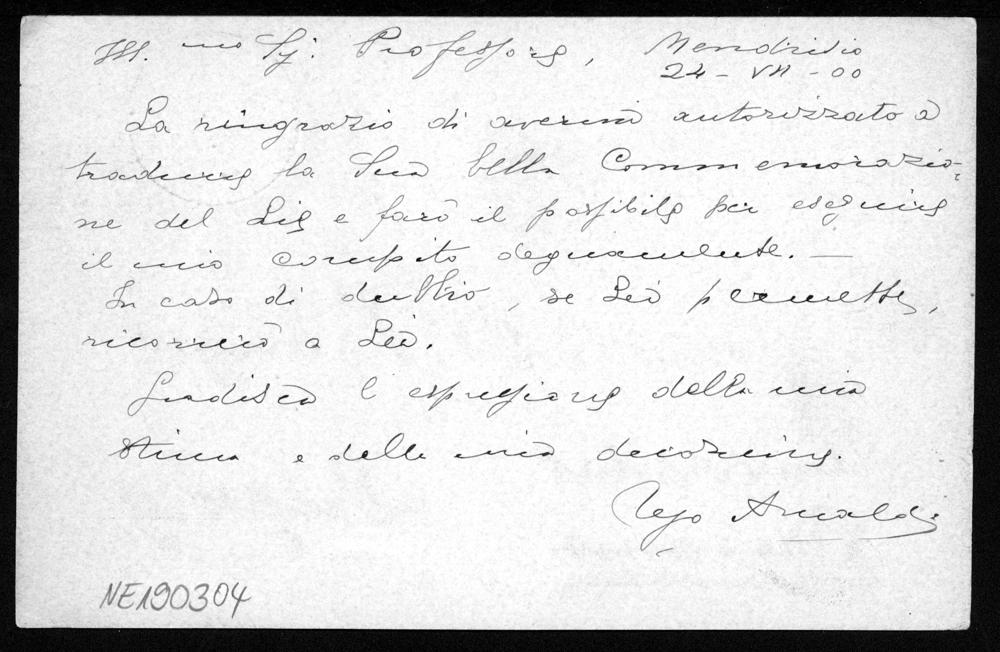 Ill.mo Sg. Professore, Mendrisio
24 - VII - 00
La ringrazio di avermi autorizzato a
tradurre la Sua bella Commemorazio-
ne del Lie e farò il possibile per eseguire
il mio compito degnamente. —
In caso di dubbio, se Lei permette,
ricorrerò a Lei.
Gradisca l'espressione della mia
stima e della mia devozione.
Ugo Amaldi
NE190304